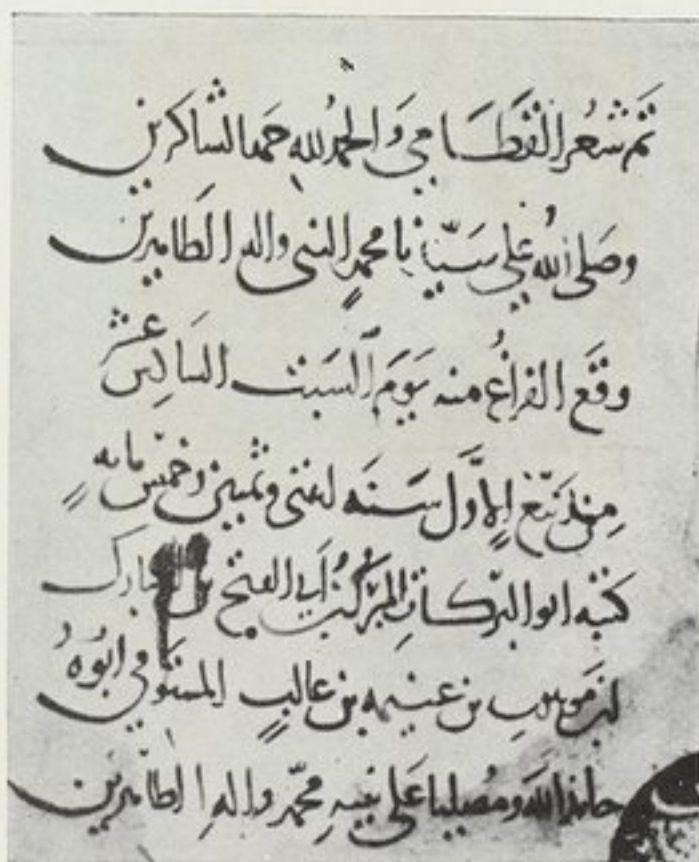 تم شعر القطامي والحمد لله حمد الشاكرين
وصلى الله علي سيدنا محمد النبي واله الطاهرين
وقع الفراغ منه يوم السبت السادس عشر
من ربيع الاول سنه اثنتي وثمنين وخمس مايه
كتبه ابو البركات المبرك بن ابي الفتح بن المبارك
بن موهوب بن غنيمه بن غالب المستوفي ابوه
حامدا لله ومصليا على نبيه محمد واله الطاهرين